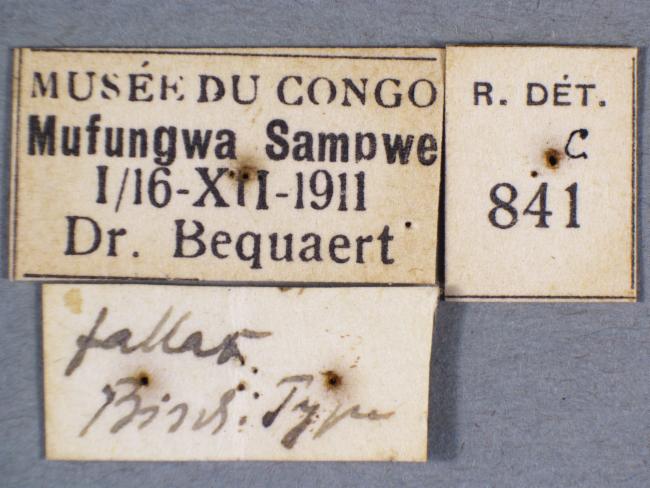 MUSÉE DU CONGO
Mufungwa Sampwe
I/16-XII-1911
Dr. Bequaert
R. DÉT.
C
841
fallax
Bisch. Type